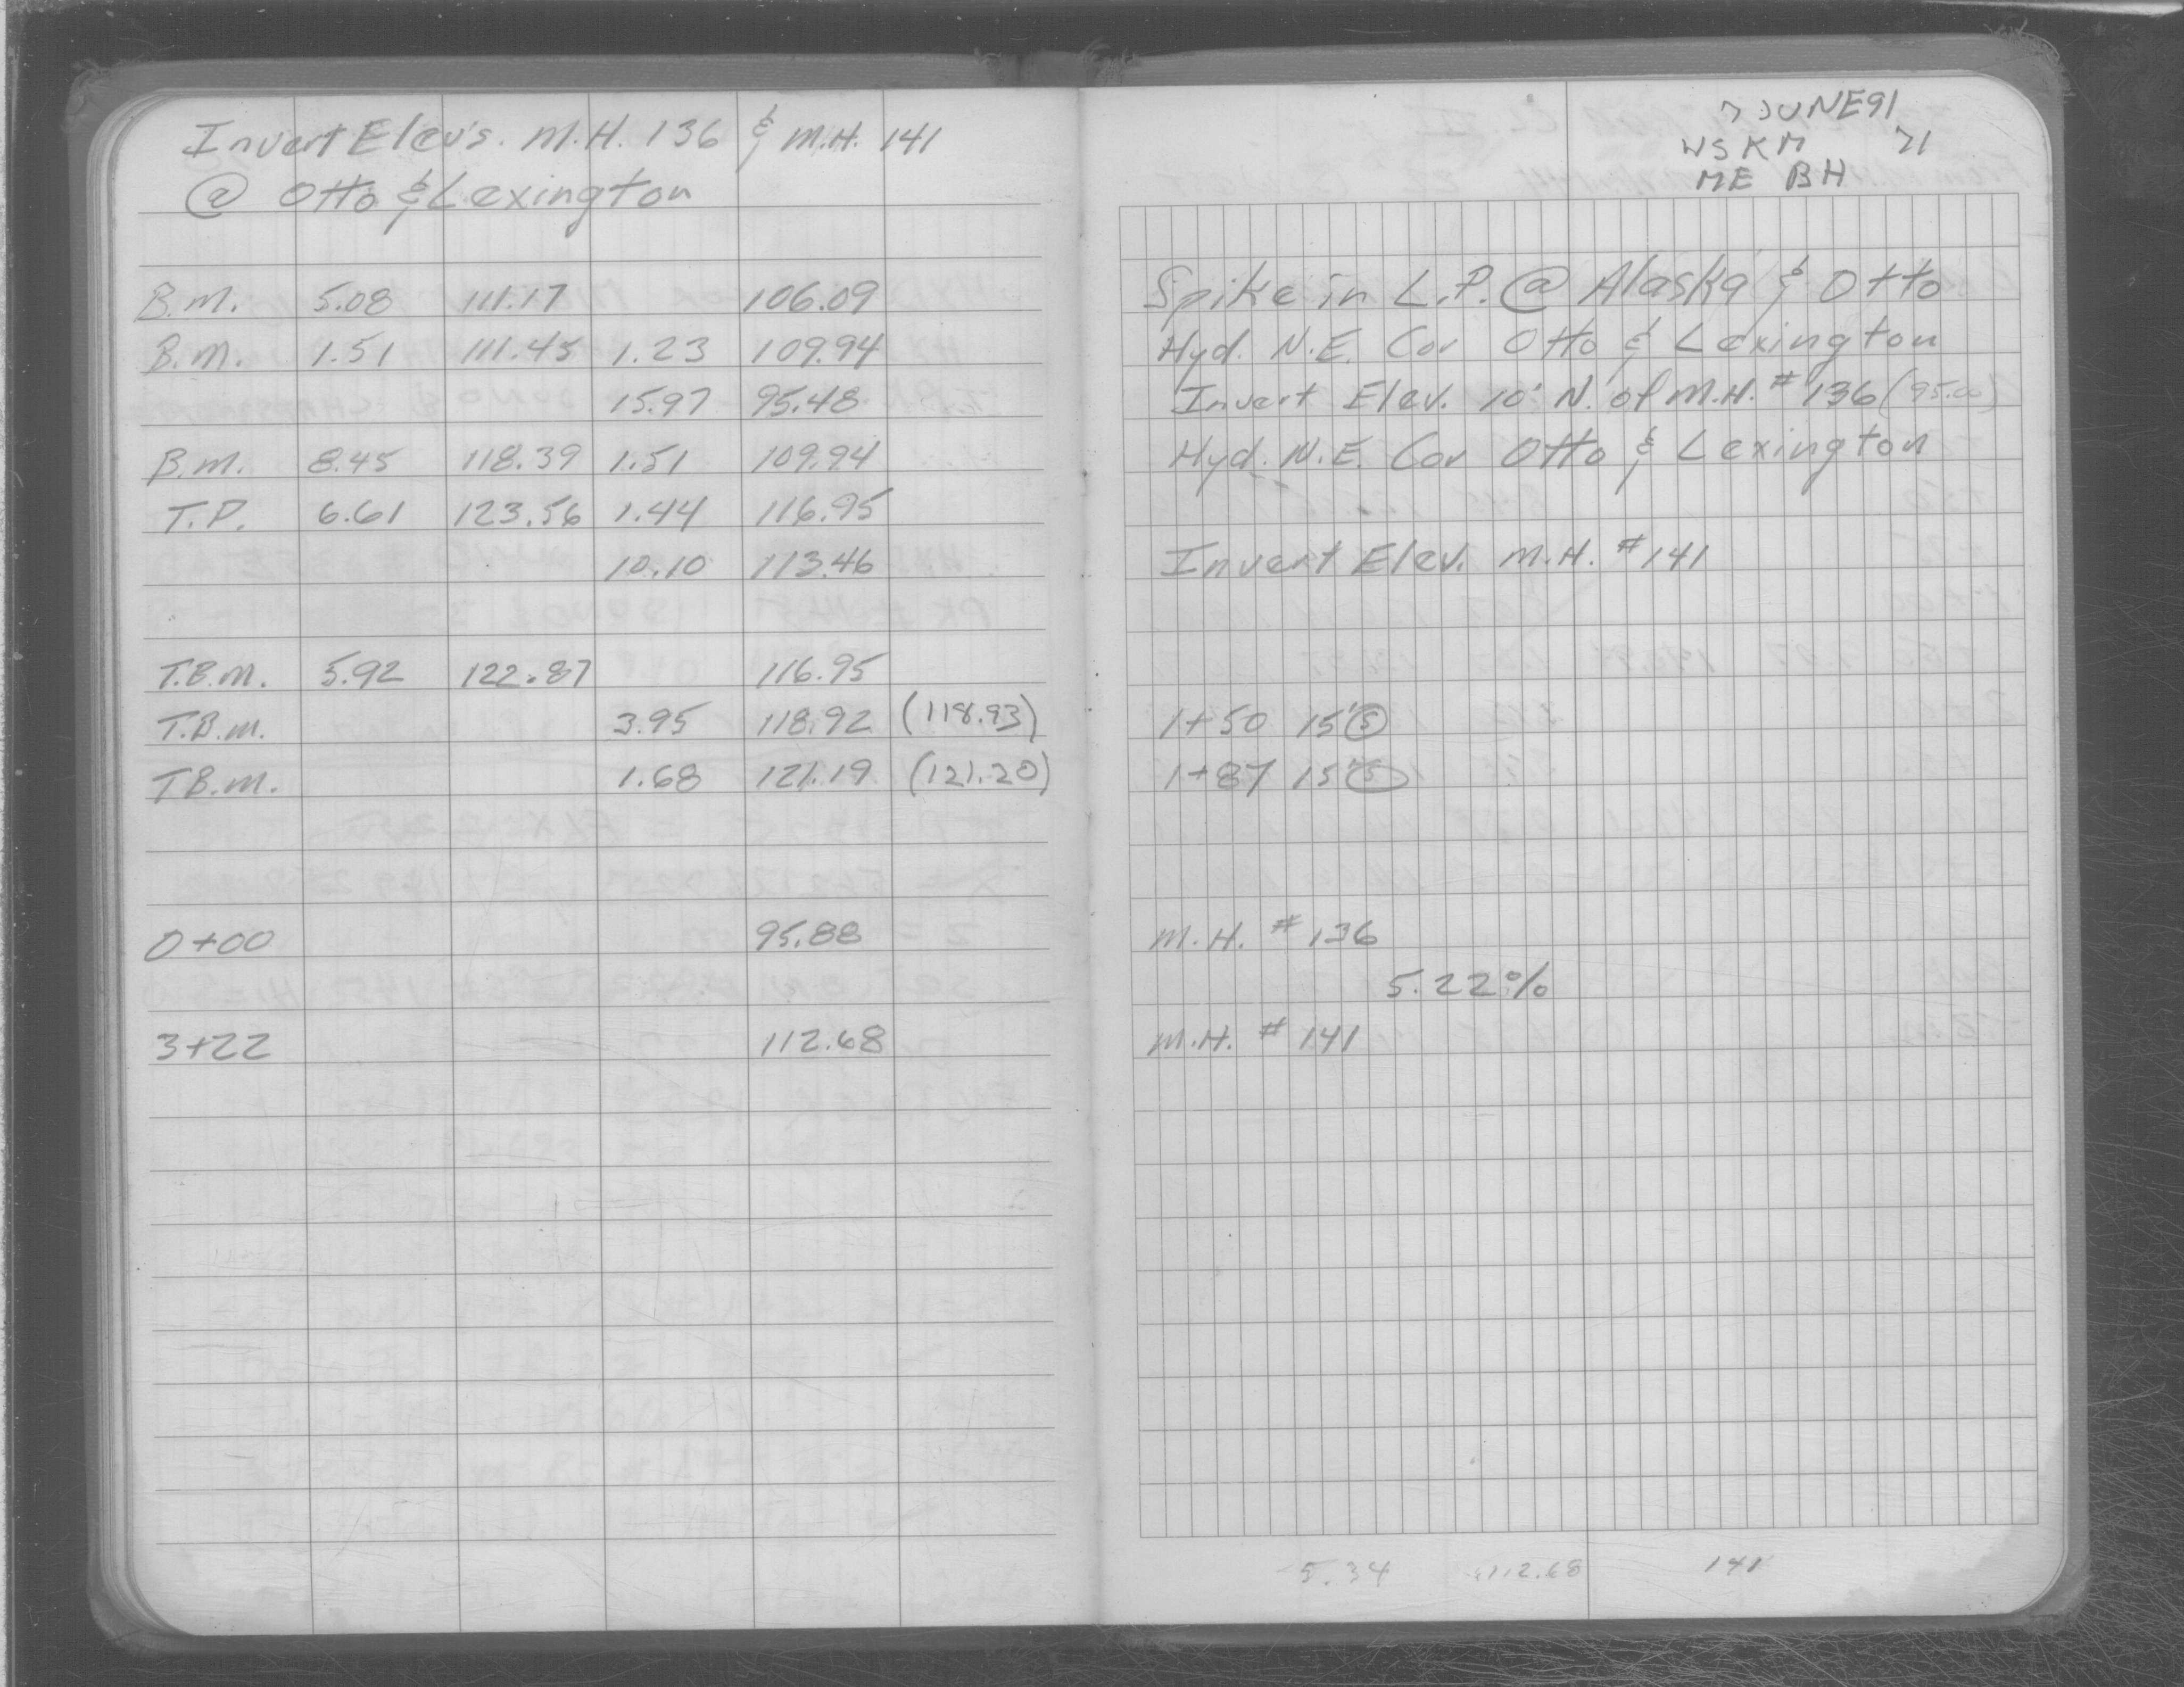 Invert Elev's. M.H. 136 & M.H. 141
@ Otto & Lexington
B.M. 5.08 111.17 106.09
B.M. 1.51 111.45 1.23 109.94
15.97 95.48
B.M. 8.45 118.39 1.51 109.94
T.P. 6.61 123.56 1.44 116.95
10.10 113.46
T.B.M. 5.92 122.87 116.95
T.B.M. 3.95 118.92 (118.93)
T.B.M. 1.68 121.19 (121.20)
0+00 95.88
3+22 112.68
7 JUNE 91
WS KM 71
ME BH
Spike in L.P. @ Alaska & Otto
Hyd. N.E. Cor Otto & Lexington
Invert Elev. 10' N. of M.H. #136 (95.00)
Hyd. N.E. Cor Otto & Lexington
Invert Elev. M.H. #141
1+50 15' S
1+87 15' S
M.H. #136
5.22%
M.H. #141
5.34 112.68 141